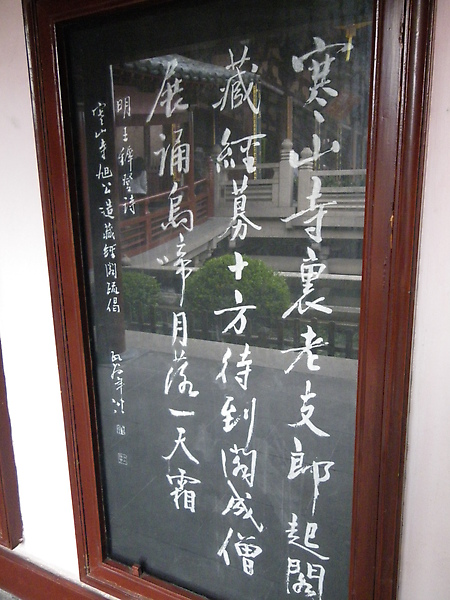 寒山寺裏老支郎起閣
藏經募十方待到閣成僧
展誦烏啼月落一天霜
明王穉登詩
寒山寺旭公造藏經閣疏偈